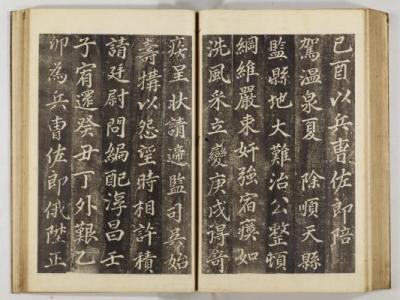 己酉以兵曹佐郎陪
駕温泉夏 除順天縣
監縣地大難治公整頓
綱維嚴束奸强宿瘼如
洗風采立變庚戌得奇
疾呈状請遞監司吳始
壽搆以怨望時相許積
請廷尉問編配淳昌壬
子宥還癸丑丁外艱乙
卯為兵曹佐郎俄陞正